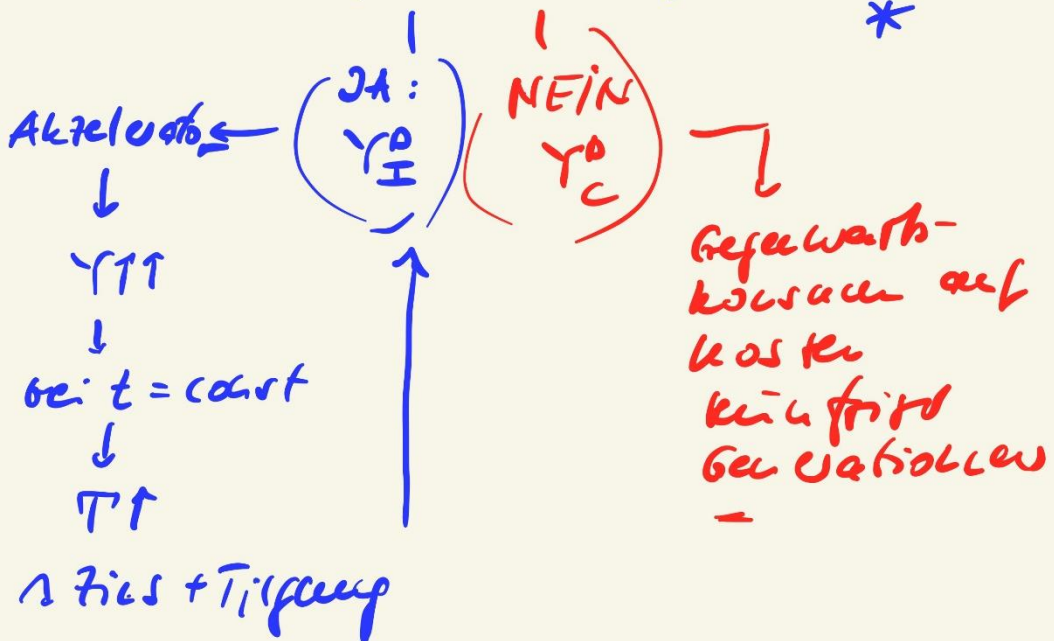 *
JA:
Y^D_I
NEIN
Y^D_C
Akzelerator
↓
Y↑↑
↓
bei t = const
↓
T↑
Zins + Tilgung
Gegenwarts-
konsum auf
Kosten
künftiger
Generationen